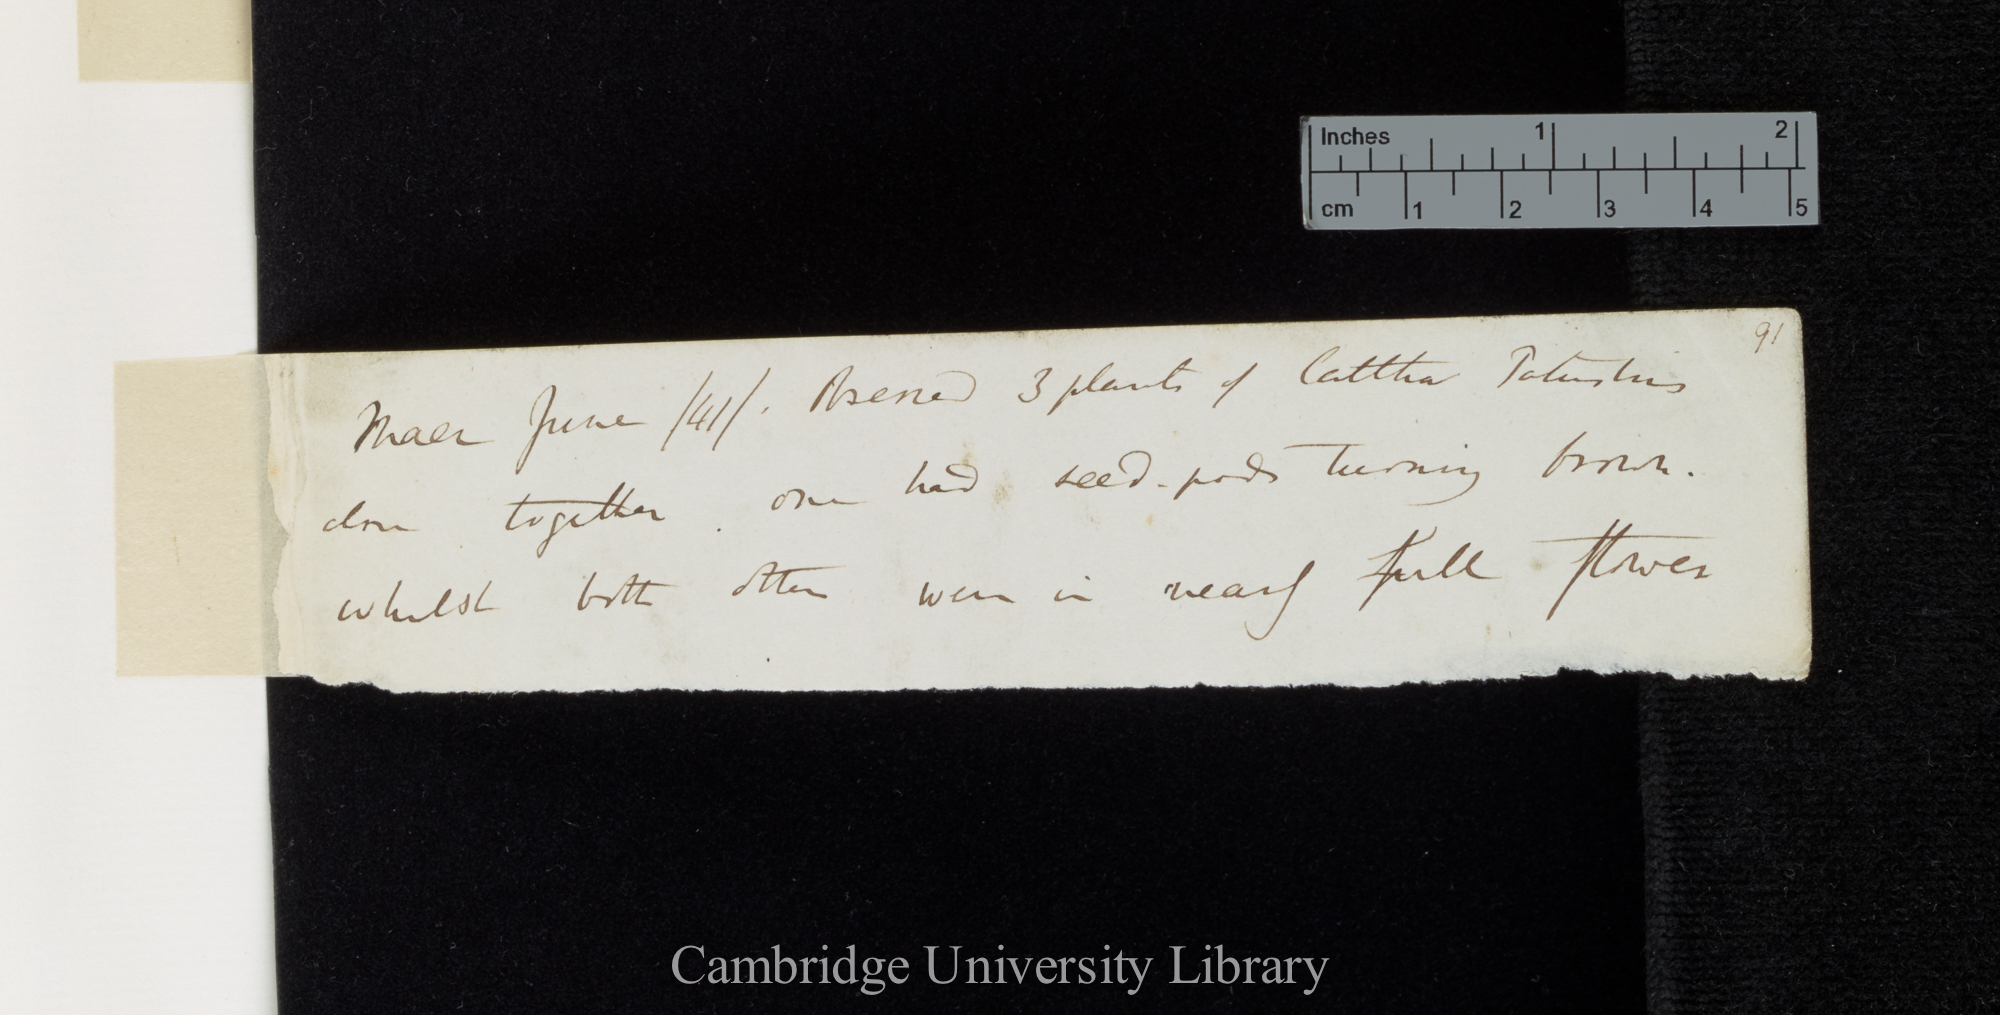 91
Maer June /41/. Observed 3 plants of Caltha Palustris
close together. one had seed-pods turning brown.
whilst both other were in nearly full flower
Inches 1 2
cm 1 2 3 4 5
Cambridge University Library